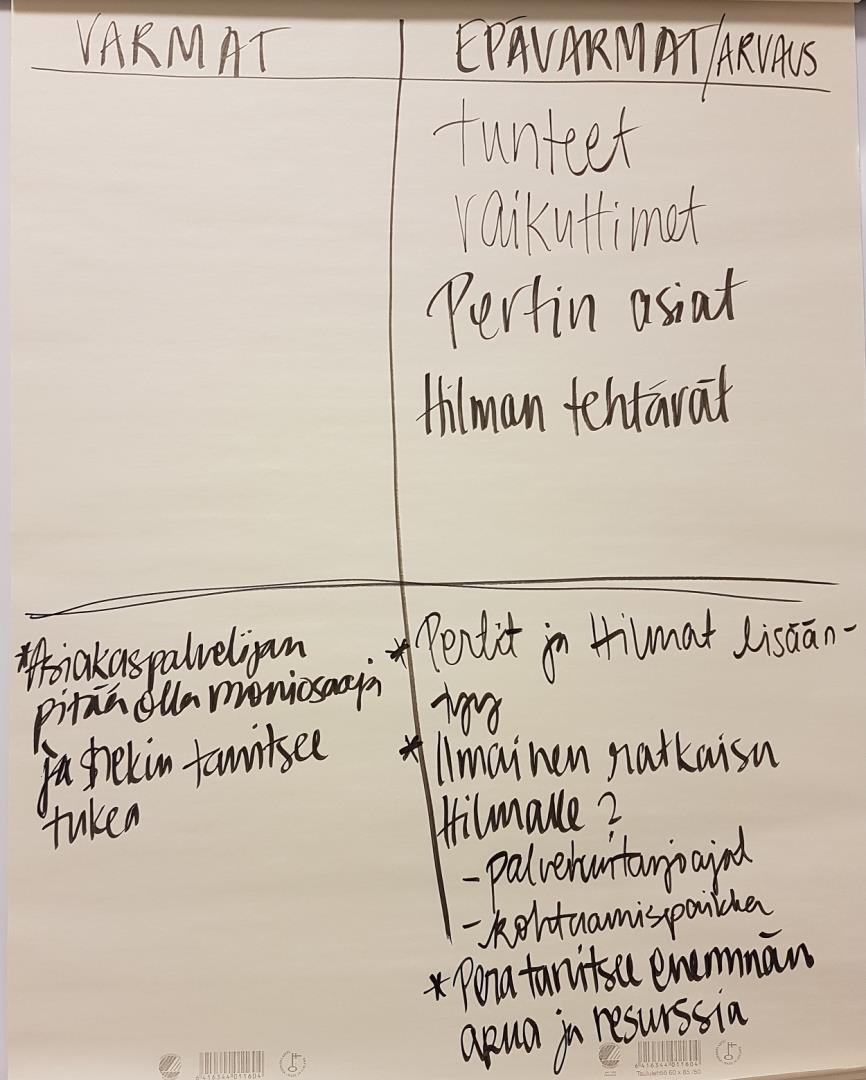 VARMAT
EPÄVARMAT/ARVAUS
tunteet
vaikuttimet
Pertin asiat
Hilman tehtävät
*Asiakaspalvelijan
pitää olla moniosaaja
ja hekin tarvitsee
tukea
* Pertit ja Hilmat lisään-
tyy
* Ilmainen ratkaisu
Hilmalle ?
- palveluntarjoajat
- kohtaamispaikka
* Pera tarvitsee enemmän
apua ja resurssia
6 416344 011604
6 416344 011604
Taululehtiö 60 x 85 /50